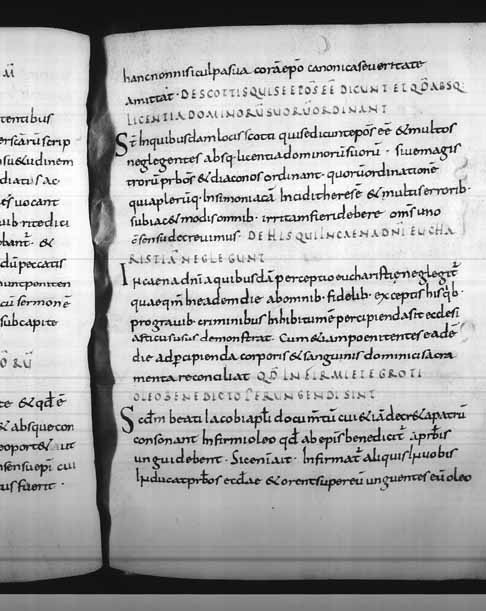 ãi
tentibus
erscarũ scrip
osu &uidinem
diatus ac
es uocant
uib ritedici
bant · &
dũ peccatis
nuncponiten
cũ sermonẽ
subcapite
õ rũ
te &qđ ẽ
& absque con
eoport& aut
nsensu epi cui
us fuerit ·
hancnonnisi culpa sua corã epõ canonicaseueritate
amittat · DE SCOTTIS QUI SE EPÕS EẼ DICUNT ET QĐ ABSQ·
LICENTIA DOMINORŨ SUORŨ ORDINANT
St̄ Inquibusdam locis scotti qui sedicunt epõs eẽ & multos
neglegentes absq· licentia dominorũ suorũ · siue magis
trorũ prb̄os & diaconos ordinant · quorũ ordinationẽ
quia plerũq· Insimoniacã Incidit heresẽ & multis errorib·
subiac& modis omnib· irritam fieri debere om̄s uno
c̃sensu decreuimus · DE HIS QUI IN CAENA DÑI EUCHA
RISTIÃ NEGLEGUNT
In caena dñi a quibusdã perceptio eucharistię neglegit̃
quae qm̃ In eadem die ab omnib· fidelib· exceptis his qb·
pro grauib· criminibus Inhibitum ẽ percipienda sit ecclesi
asticus usus demonstrat · Cum &iam poenitentes eadẽ
die ad percipienda corporis & sanguinis dominici sacra
menta reconcilient QĐ INFIRMI ET EGROTI
OLEO BENEDICTO PERUNGENDI SINT
Scđm beati Iacobi aptĩ documtũ cui &iã decr&a patrũ
consonant Infirmi oleo qđ ab epis benedicit̃ a prb̄is
ungui debent · Sic eni ait · Infirmat̃ aliquis In uobis
Inducat prb̄os eccłae & orent super eũ unguentes eũ oleo